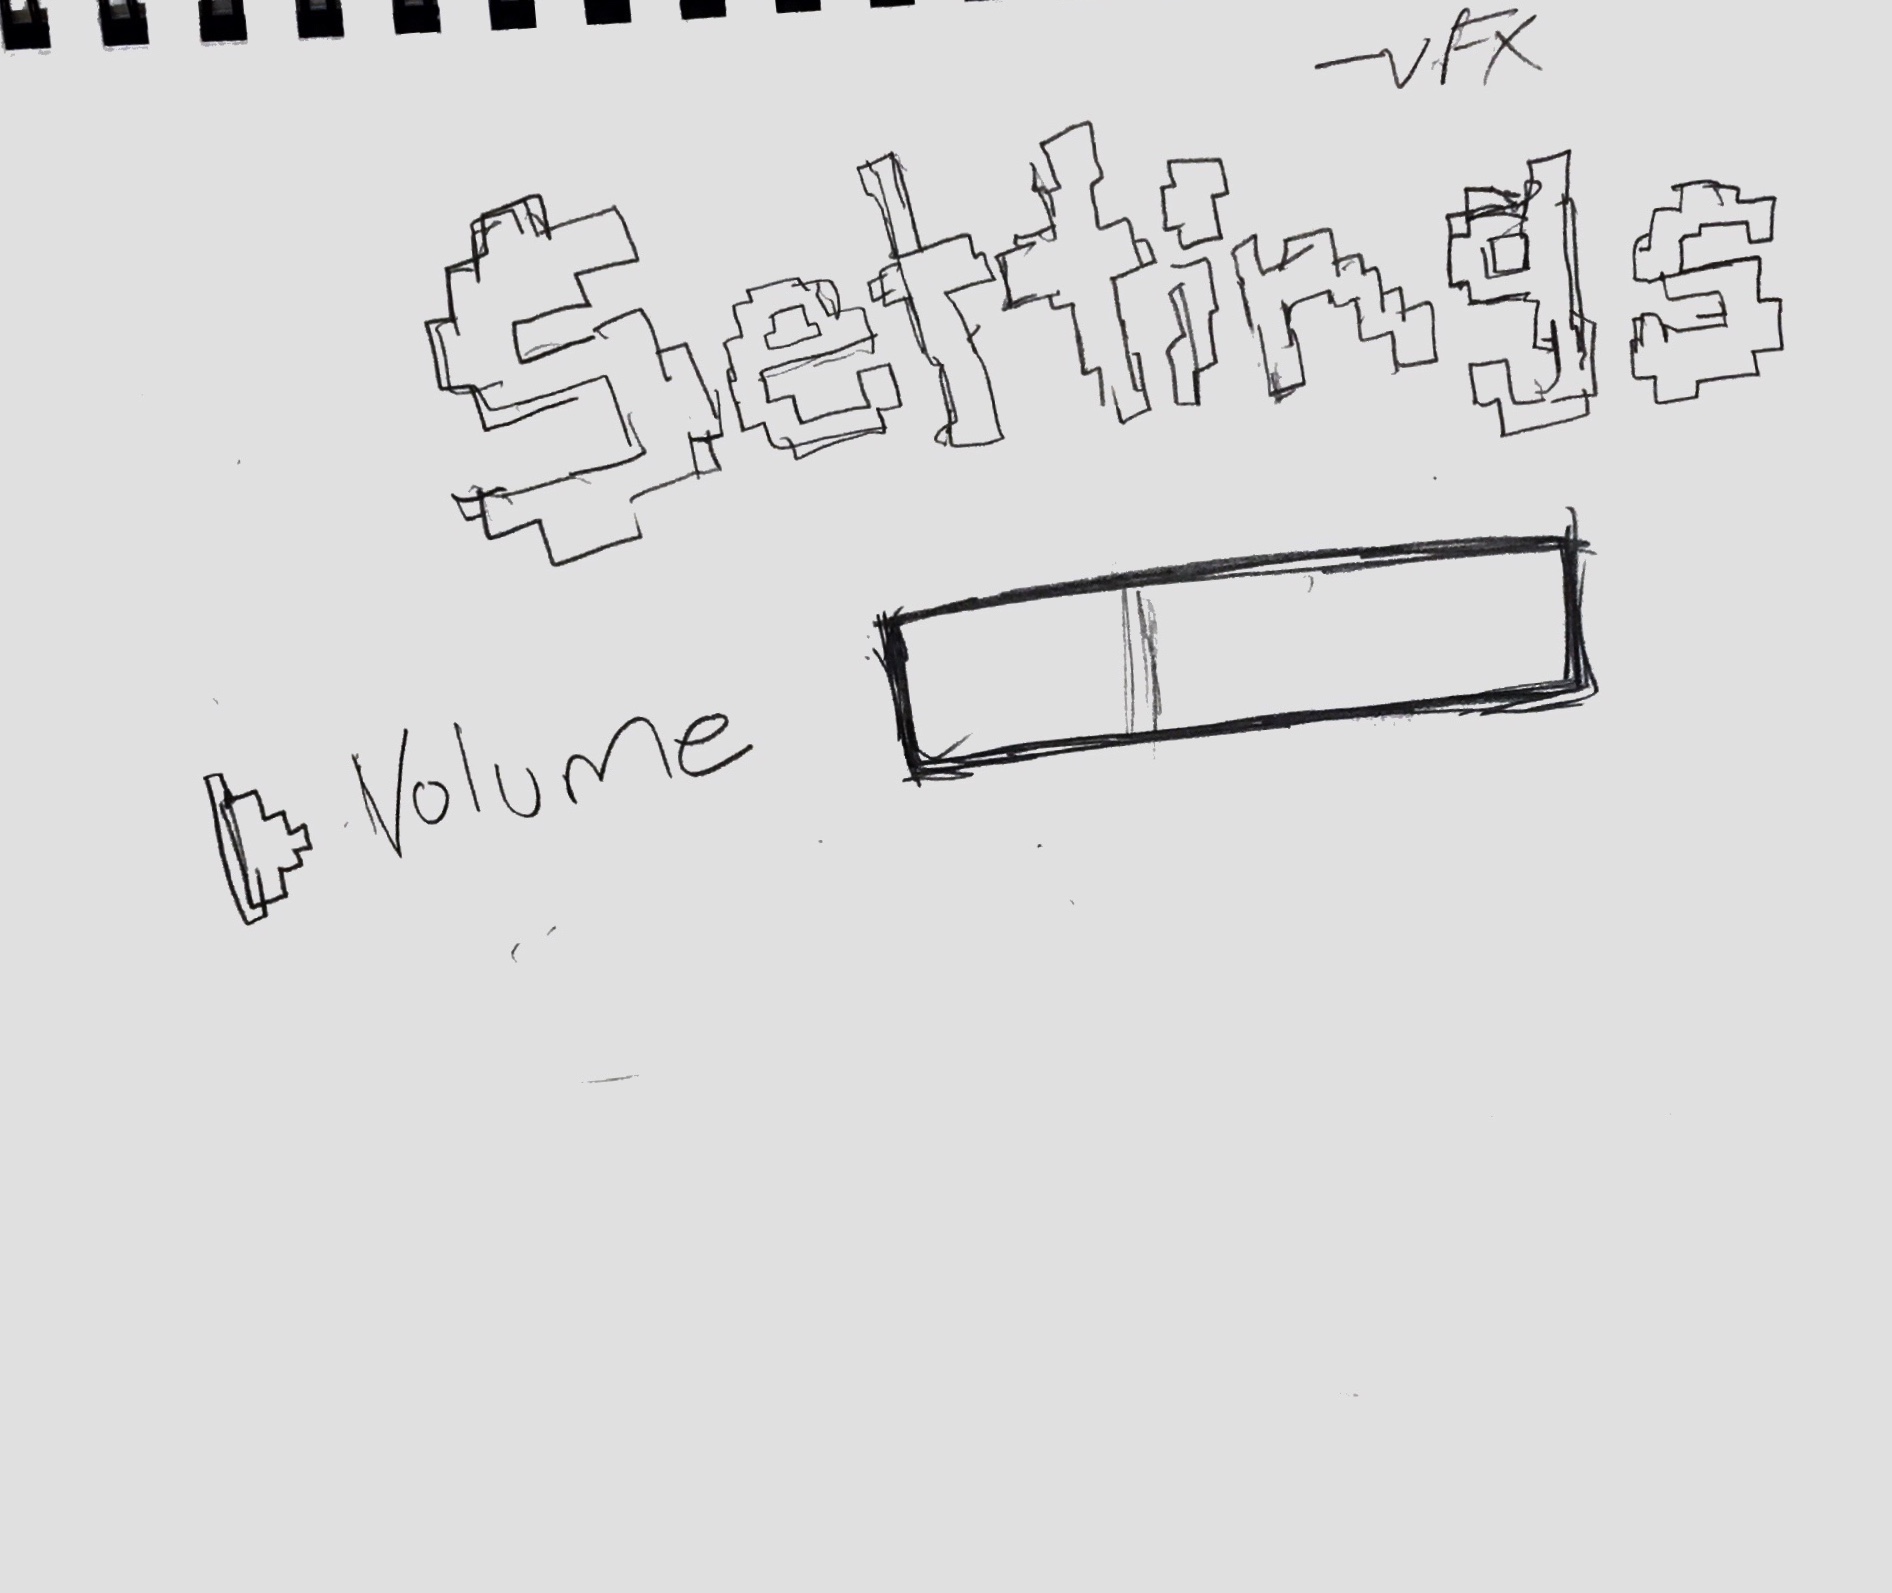 -VFX
Settings
Volume